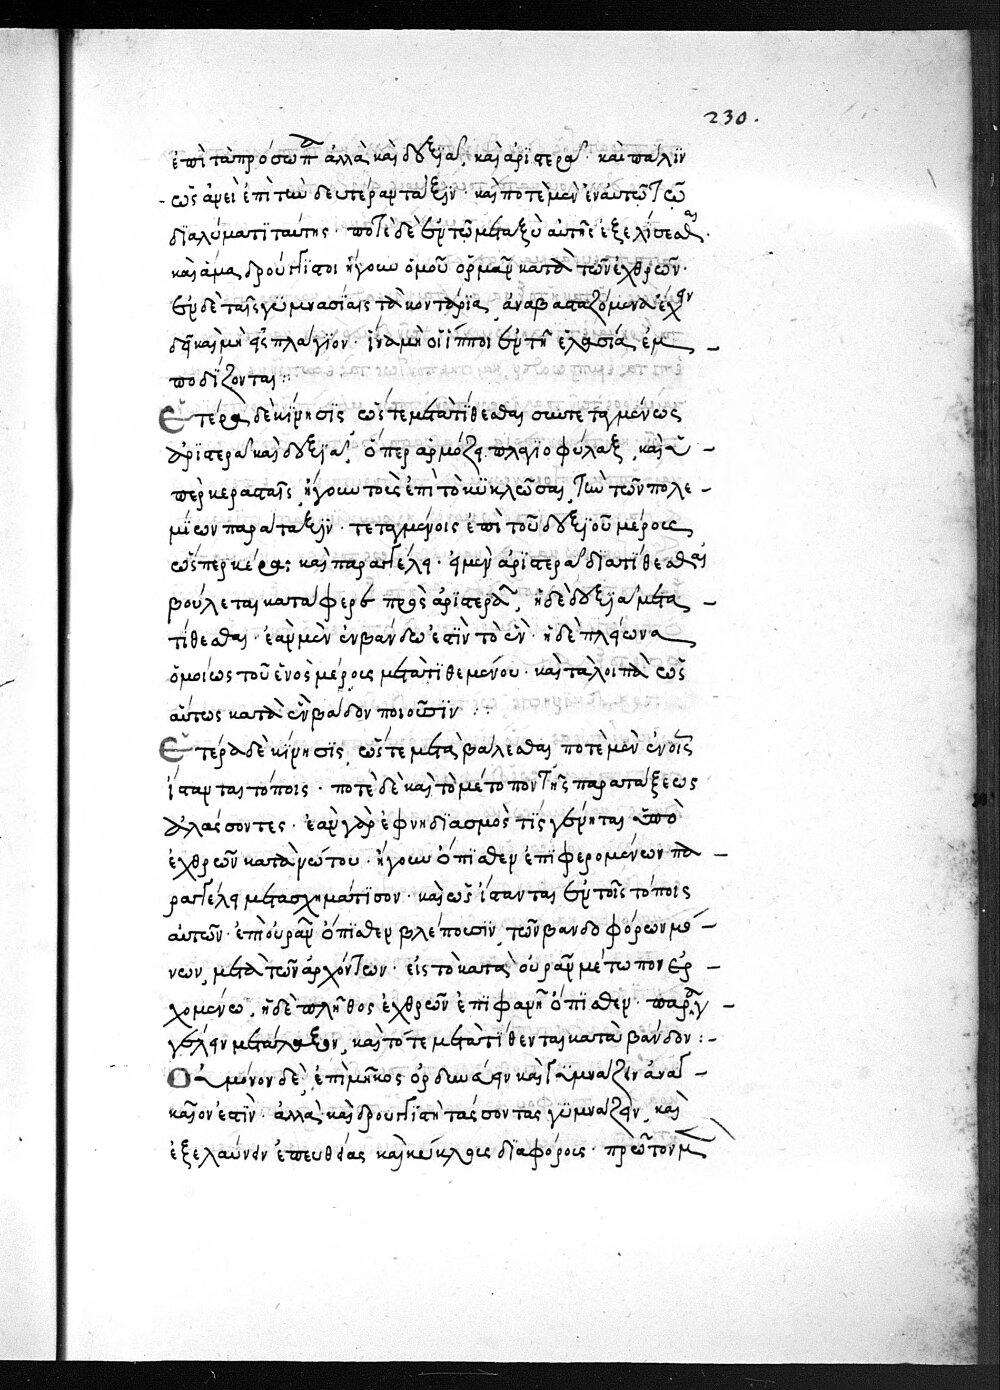 230.
ἐπὶ τὰ πρόσωπα ἀλλὰ καὶ δεξιὰ, καὶ ἀριστερά· καὶ πάλιν
ὡς ἀψεὶ ἐπὶ τὴν δευτέραν τάξιν· καὶ ποτὲ μὲν ἐν αὐτῶ τῶ
διαλύματι ταύτης· ποτὲ δὲ ἐν τῶ μεταξὺ αὐτῆς ἐξελίσεσθαι.
καὶ ἅμα δρουγγιστὶ ἤγουν ὁμοῦ ὁρμᾶν κατὰ τῶν ἐχθρῶν·
ἐν δὲ ταῖς γυμνασίαις τὰ κοντάρια, ἀναβασταζόμενα ἔχειν
δεῖ καὶ μὴ εἰς πλάγιον· ἵνα μὴ οἱ ἵπποι ἐν τῆ ἐλασία ἐμ
ποδίζονται:
Ἑτέρα δὲ κίνησις ὥστε μετατίθεσθαι συντεταγμένως
ἀριστερὰ καὶ δεξιά, ὅπερ ἁρμόζει πλαγιοφύλαξι, καὶ ὑ
περκεράσταις, ἤγουν τοῖς ἐπὶ τὸ κυκλῶσαι τὴν τῶν πολε
μίων παράταξιν· τεταγμένοις ἐπὶ τοῦ δεξιοῦ μέρους
ὥσπερ κέρας καὶ παραγγέλει· εἰ μὲν ἀριστερὰ διατίθεσθαι
βούλεται καταφέρειν πρὸς ἀριστερά, ἢ δὲ δεξιὰ μετα
τίθεσθαι· ἐὰν μὲν ἓν βάνδον ἐστὶν τὸ ἓν· ἢ δὲ πλείωνα
ὁμοίως τοῦ ἑνὸς μέρους μετατιθεμένου· καὶ τὰ λοιπὰ ὡσ
αύτως κατὰ ἓν βάνδον ποιοῦσιν:
Ἑτέρα δὲ κίνησις, ὥστε μεταβάλεσθαι ποτὲ μὲν ἐν οἷς
ἵστανται τόποις· ποτὲ δὲ καὶ τὸ μέτοπον τῆς παρατάξεως
ἀλάσσοντες· ἐὰν γὰρ ἐφνηδιασμὸς τίς γένηται ὑπὸ
ἐχθρῶν κατὰ νώτου· ἤγουν ὄπισθεν ἐπιφερομένων πα
ραγγέλει μετασχημάτισον· καὶ ὡς ἵστανται ἐν τοῖς τόποις
αὐτῶν· ἐπὶ οὐρὰν ὄπισθεν βλέπουσιν, τῶν βανδοφόρων μό
νων, μετὰ τῶν ἀρχόντων· εἰς τὸ κατὰ οὐρὰν μέτωπον ἐρ
χομένων, ἢ δὲ πλῆθος ἐχθρῶν ἐπιφανῆ ὄπισθεν· παραγ
γέλειν μετάλαξον, καὶ τότε μετατίθενται κατὰ βάνδον:
Οὐ μόνον δὲ ἐπὶ μῆκος ὀρδινεύειν καὶ γυμνάζειν ἀναγ
καῖον ἐστὶν· ἀλλὰ καὶ δρουγγιστὶ τάσσοντας γυμνάζειν, καὶ
ἐξελαύνειν ἐπευθείας καὶ κύκλοις διαφόροις· πρῶτον μ